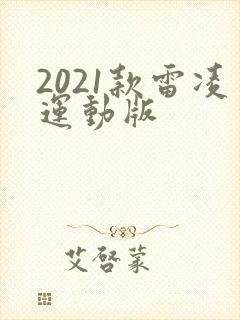 2021款雷凌
運動版
艾啓蒙